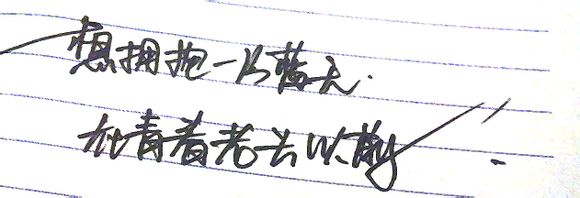 想拥抱一片蓝天.
在青春老去以前